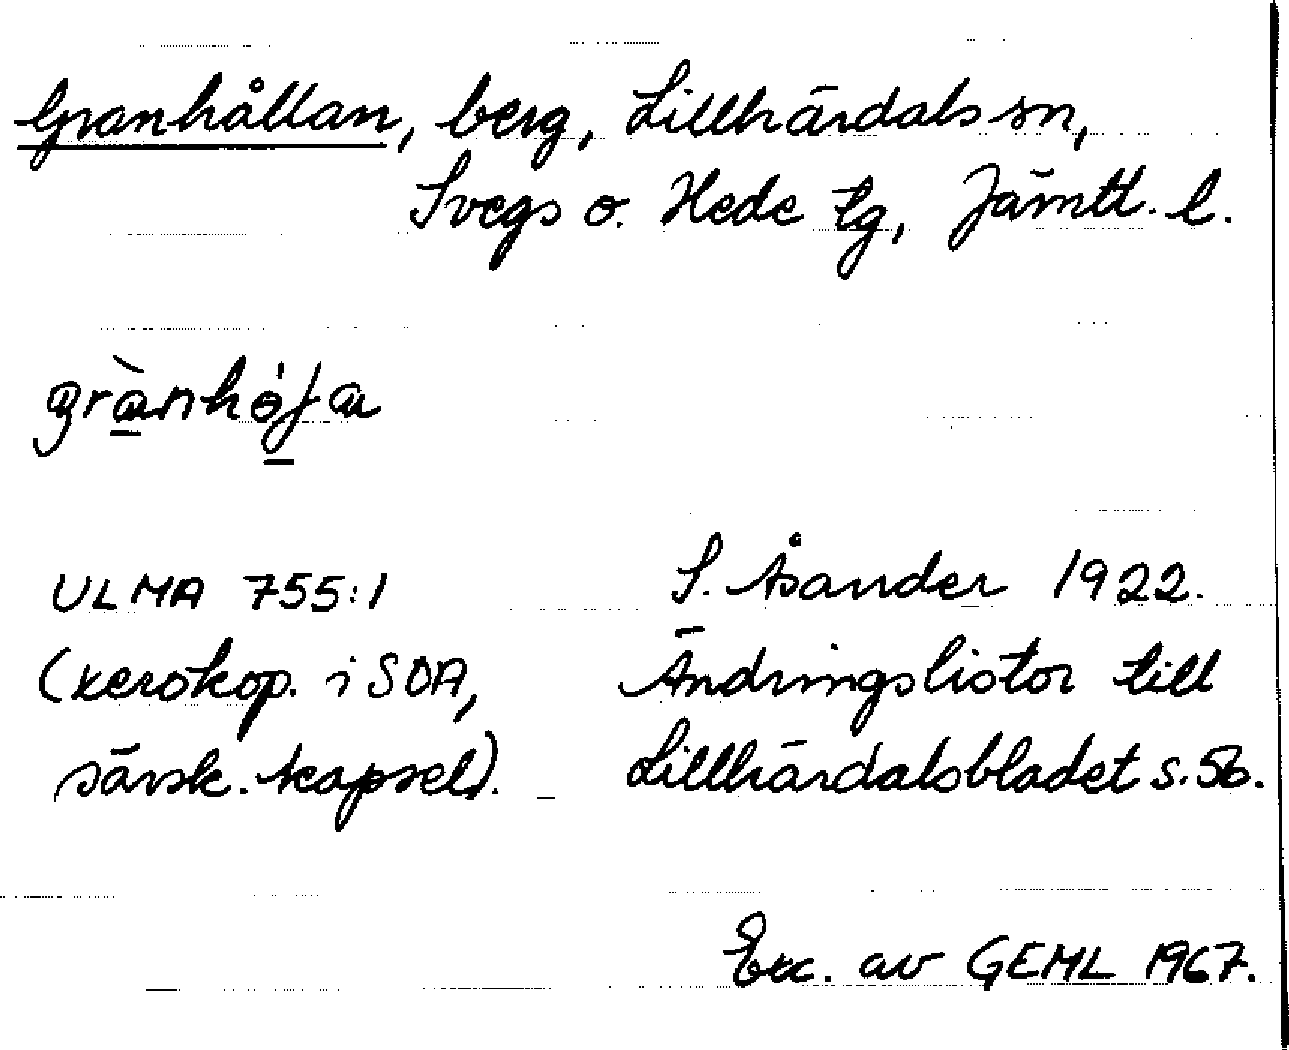 Granhållan, berg, Lillhärdals sn,
Svegs o. Hede tg, Jämtl. l.
grànhǿʃa
ULMA 755:1
(xerokop. i SOA,
särsk. kapsel).
S. Åsander 1922.
Ändringslistor till
Lillhärdalsbladet s. 56.
Exc. av GEML 1967.